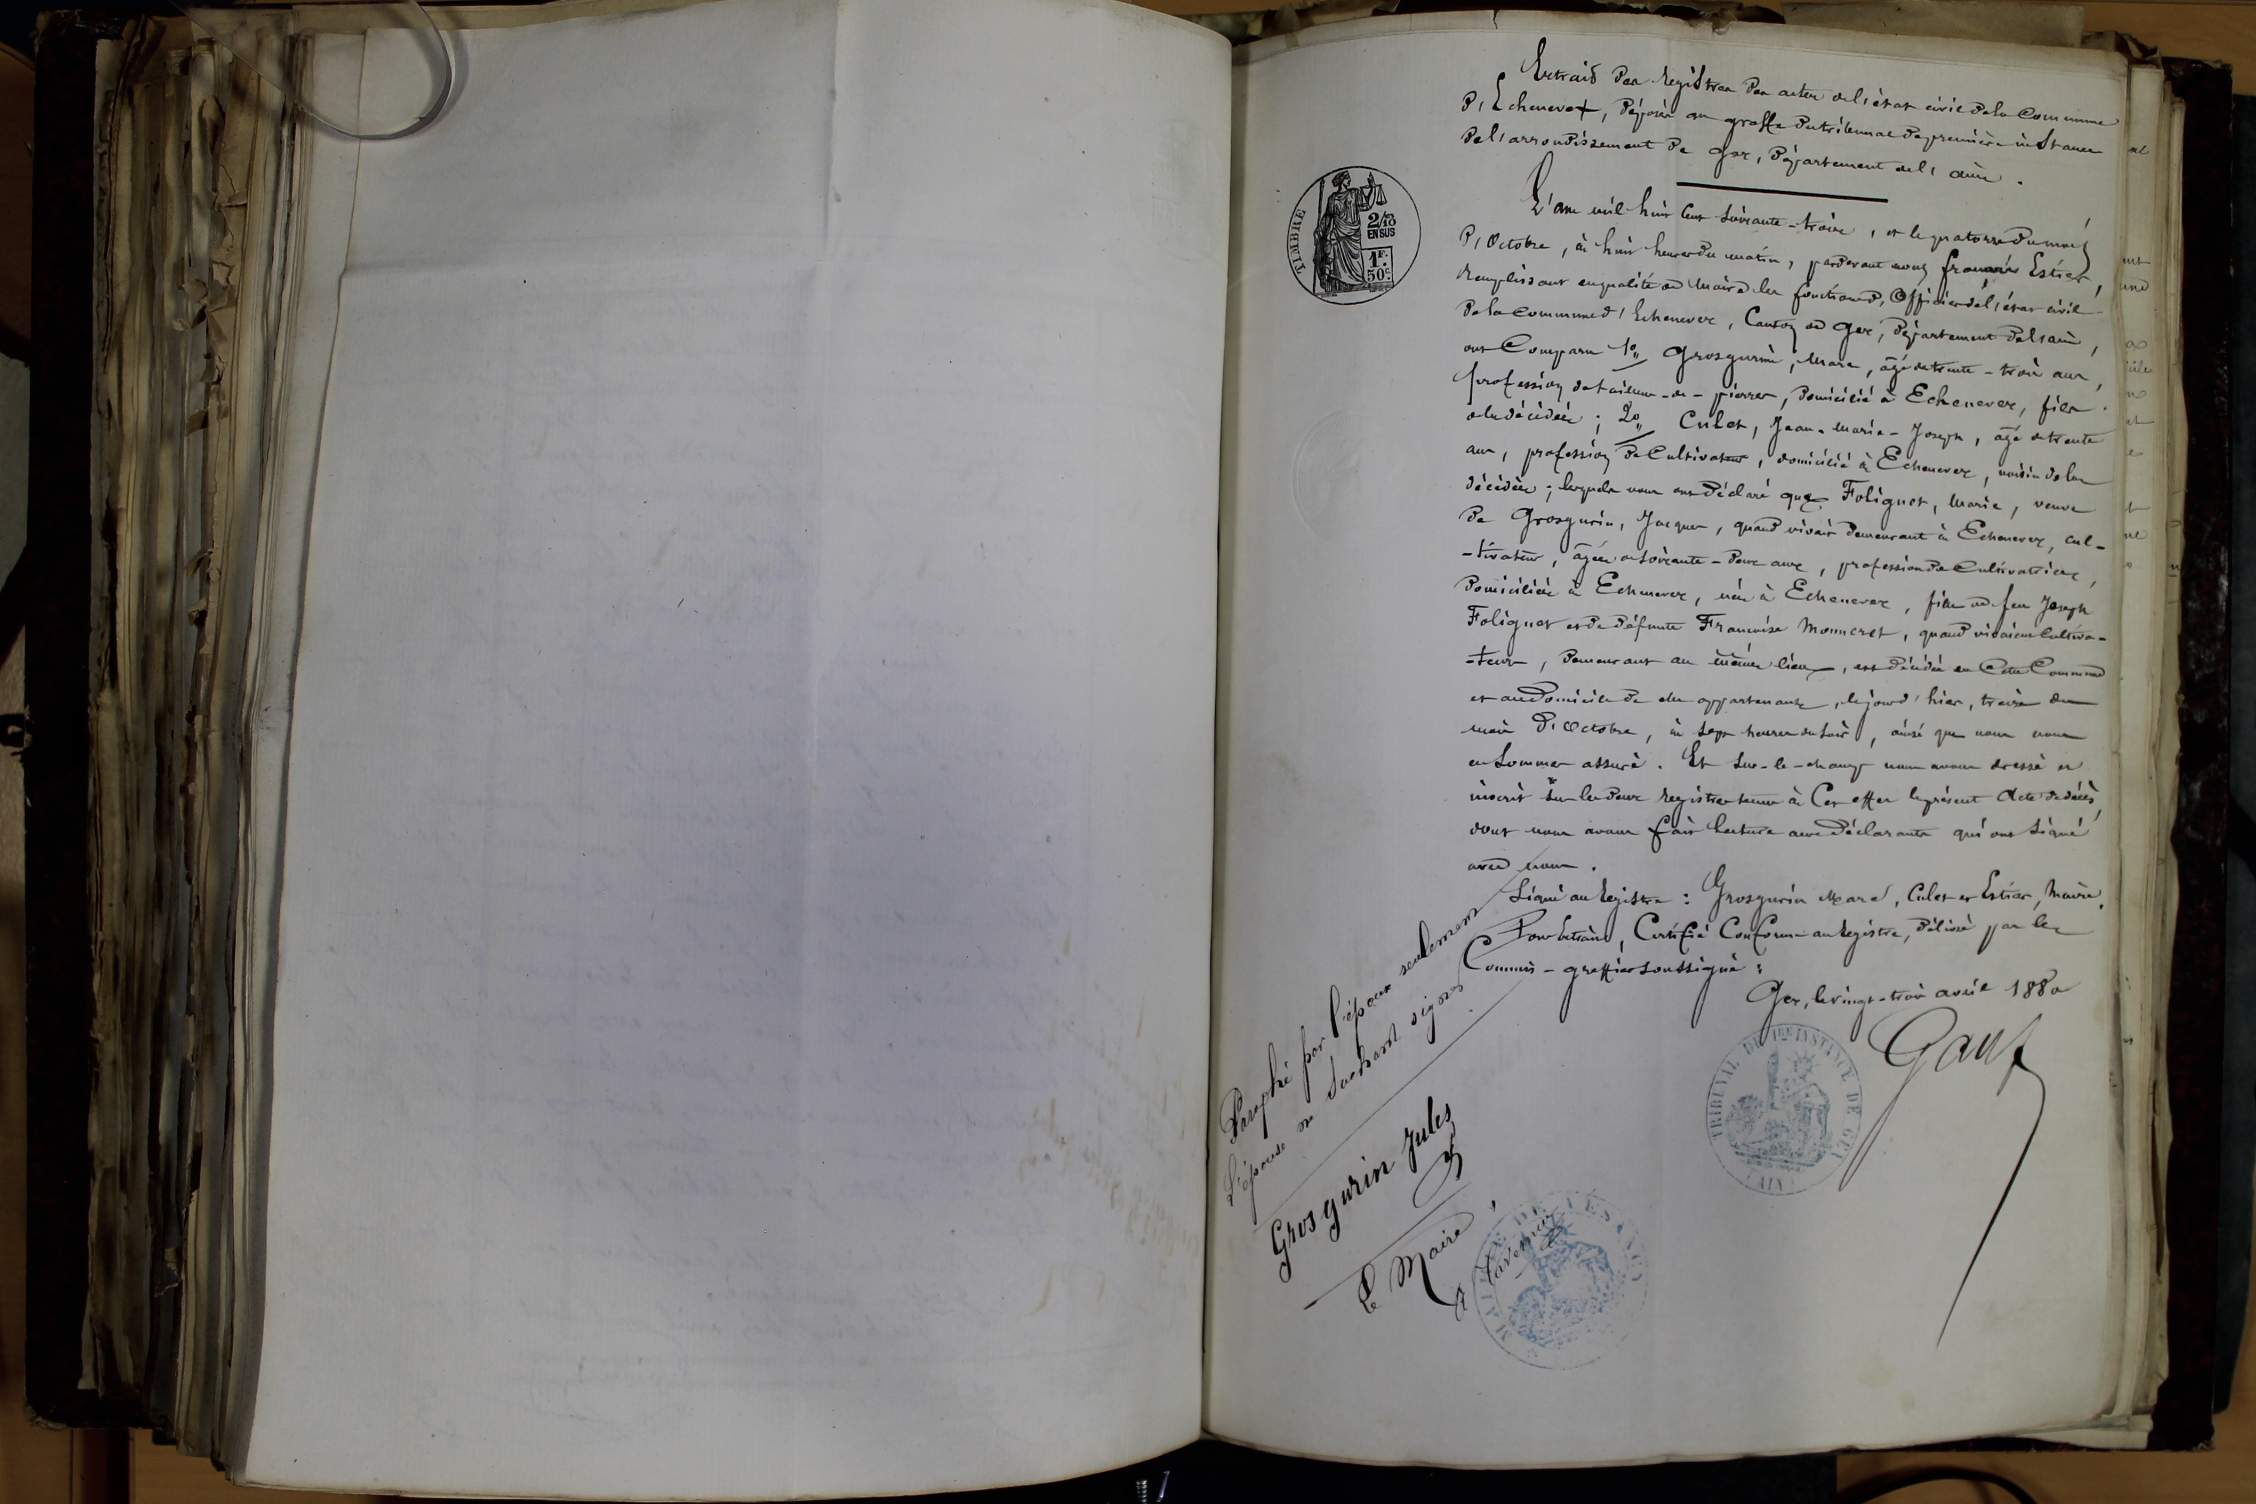 Extrait des registres des actes de l'état civil de la Commune
d'Echenevex, déposés au greffe du tribunal de première instance
de l'arrondissement de Gex, département de l'Ain.
L'an mil huit cent soixante-treize, et le quatorze du mois
d'Octobre, à huit heures du matin, pardevant nous françois Estier,
remplissant en qualité de Maire les fonctions d'Officier de l'état civil
de la commune d'Echenevex, Canton de Gex, département de l'ain,
ont Comparu 1o Grosgurin, Marc, âgé de trente-trois ans,
profession de tailleur-de-pierres, domicilié à Echenevex, fils
de la décédée; 2o Culet, Jean-Marie-Joseph, âgé de trente
ans, profession de Cultivateur, domicilié à Echenevex, voisin de la
décédée; lesquels nous ont déclaré que Foliguet, Marie, veuve
de Grosgurin, Jacques, quand vivait demeurant à Echenevex, cul-
-tivateur, âgée de soixante-deux ans, profession de Cultivatrice,
domiciliée à Echenevex, née à Echenevex, fille de feu Joseph
Foliguet et de défunte Françoise Monneret, quand vivaient Cultiva-
-teurs, demeurant au même lieu, est décédée en Cette Commune
et au domicile de elle appartenant, le jour d'hier, treize du
mois d'Octobre, à sept heures du soir, ainsi que nous nous
en sommes assuré. Et sur-le-champ nous avons dressé et
inscrit sur les deux registres tenus à Cet effet le présent Acte de décès,
dont nous avons fait lecture aux déclarants qui ont signé
avec nous.
Signé au registre: Grosgurin Marc, Culet et Estier, Maire.
Pour Extrait, Certifié Conforme au registre, délivré par le
Commis-greffier soussigné:
Gex, le vingt-trois avril 1880
Gauf
TIMBRE
2/10
EN SUS
1F.
50c.
TRIBUNAL DE 1re INSTANCE DE GEX
(AIN)
Paraphé par l'époux seulement
L'épouse ne sachant signer
Grosgurin Jules
Le Maire
MAIRIE DE